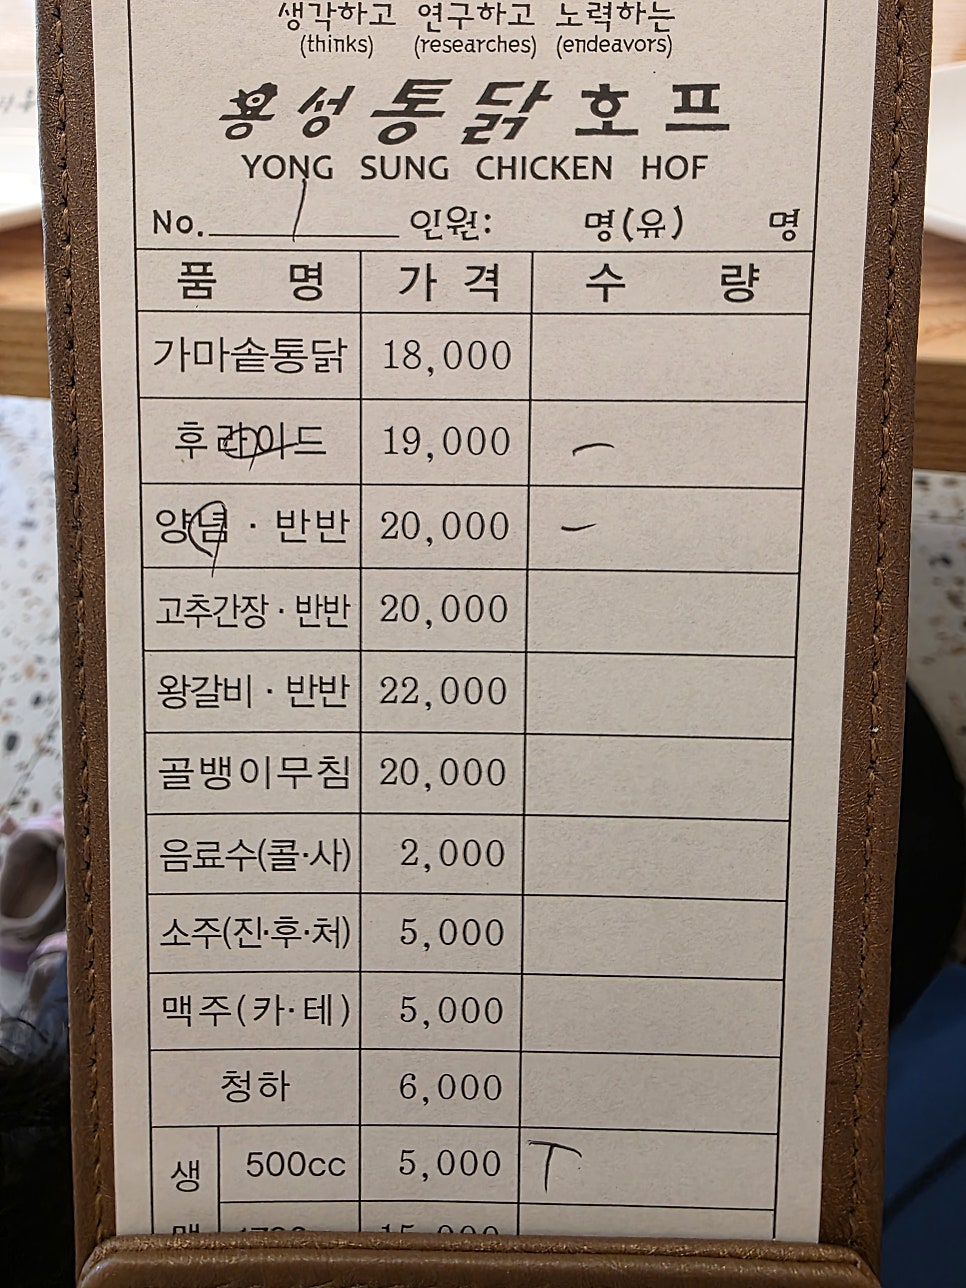 생각하고 연구하고 노력하는
(thinks) (researches) (endeavors)
용성통닭호프
YONG SUNG CHICKEN HOF
No. 1 인원: 명(유) 명
품명 가격 수량
가마솥통닭 18,000
후라이드 19,000 一
양념·반반 20,000 一
고추간장·반반 20,000
왕갈비·반반 22,000
골뱅이무침 20,000
음료수(콜·사) 2,000
소주(진·후·처) 5,000
맥주(카·테) 5,000
청하 6,000
생 500cc 5,000 T